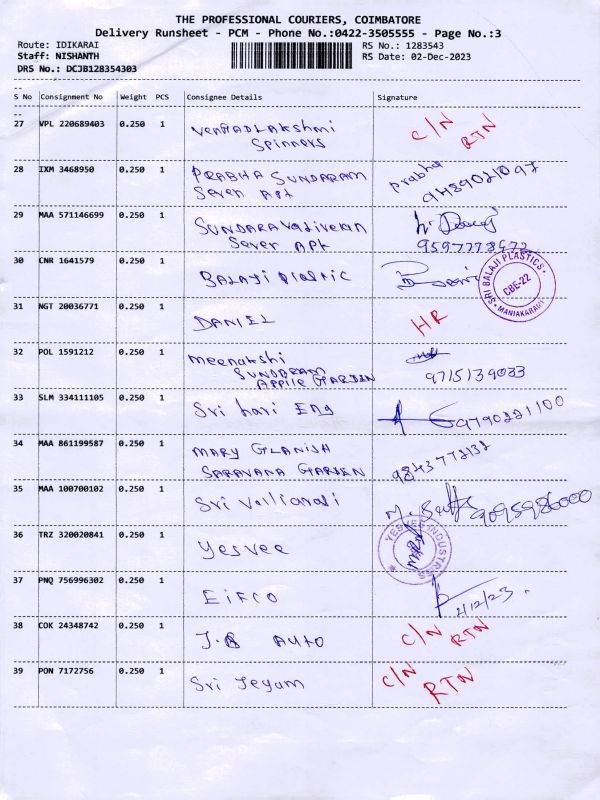 THE PROFESSIONAL COURIERS, COIMBATORE
Delivery Runsheet - PCM - Phone No.:0422-3505555 - Page No.:3
Route: IDIKARAI RS No.: 1283543
Staff: NISHANTH RS Date: 02-Dec-2023
DRS No.: DCJB128354303
--
S No Consignment No Weight PCS Consignee Details Signature
--
27 VPL 220689403 0.250 1 VENHADLAKshmi C/N RTN
Spinners
28 IXM 3468950 0.250 1 PRABHA SUNDARAM prabha
Seven Apt 9489021097
29 MAA 571146699 0.250 1 SUNDARAVadivelan
Seven APt
30 CNR 1641579 0.250 1 BALAJi Plastic SRI BALAJI PLASTICS CBE-22 MANIAKARAM
31 NGT 20036771 0.250 1 DANIEL HR
32 POL 1591212 0.250 1 meenakshi
SUNDARAM 9715139033
APPlE GARDEN
33 SLM 334111105 0.250 1 Sri hari ENg 9790221100
34 MAA 861199587 0.250 1 MARY GLANISA 9843772132
SARAVANA GARDEN
35 MAA 100700102 0.250 1 Sri
36 TRZ 320020841 0.250 1 Yesvee YESVEE INDUSTRIES
37 PNQ 756996302 0.250 1 EIFCO 2/12/23.
38 COK 24348742 0.250 1 J.B AUTO C/N RTN
39 PON 7172756 0.250 1 Sri Jeyam C/N RTN